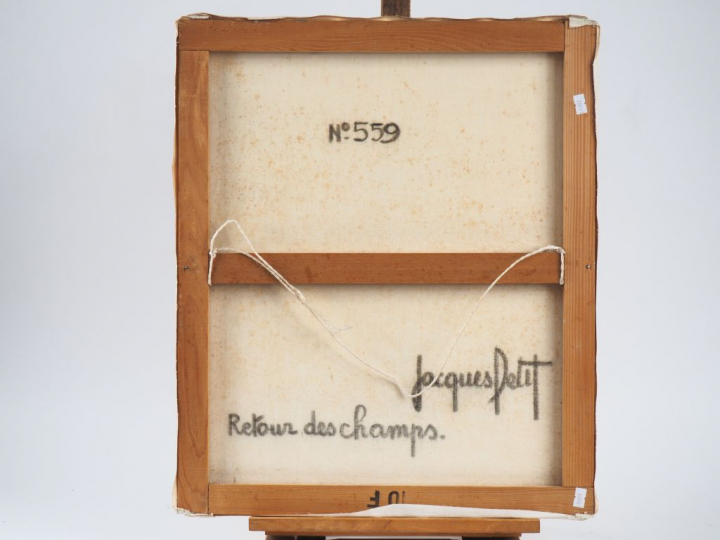 N° 559
Jacques Petit
Retour des champs.
10 F